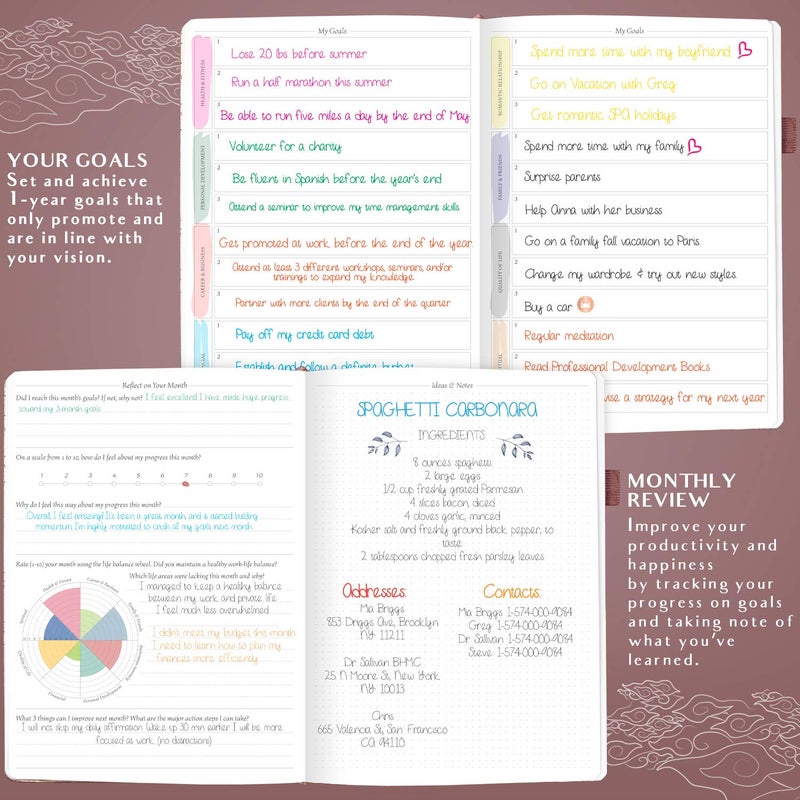 YOUR GOALS
Set and achieve
1-year goals that
only promote and
are in line with
your vision.
My Goals
HEALTH & FITNESS
1 Lose 20 lbs before summer
2 Run a half marathon this summer
3 Be able to run five miles a day by the end of May
PERSONAL DEVELOPMENT
1 Volunteer for a charity
2 Be fluent in Spanish before the year's end
3 Attend a seminar to improve my time management skills
CAREER & BUSINESS
1 Get promoted at work before the end of the year
2 Attend at least 3 different workshops, seminars, and/or
trainings to expand my knowledge
3 Partner with more clients by the end of the quarter
1 Pay off my credit card debt
Establish and follow a definite budget
My Goals
ROMANTIC RELATIONSHIP
1 Spend more time with my boyfriend
2 Go on Vacation with Greg
3 Get romantic SPA holidays
FAMILY & FRIENDS
1 Spend more time with my family
2 Surprise parents
3 Help Anna with her business
QUALITY OF LIFE
1 Go on a family fall vacation to Paris
2 Change my wardrobe & try out new styles
3 Buy a car
1 Regular meditation
2 Read Professional Development Books
ise a strategy for my next year
Reflect on Your Month
Did I reach this month's goals? If not, why not? I feel excellent I have made huge progress
toward my 3-month goals
On a scale from 1 to 10, how do I feel about my progress this month?
1 2 3 4 5 6 7 8 9 10
Why do I feel this way about my progress this month?
Overall, I feel amazing! It's been a great month, and a started building
momentum. I'm highly motivated to crush all my goals next month
Rate (1-10) your month using the life balance wheel. Did you maintain a healthy work-life balance?
Which life areas were lacking this month and why?
I managed to keep a healthy balance
between my work and private life
I feel much less overwhelmed
I didn't meet my budget this month
I need to learn how to plan my
finances more efficiently
Health & Fitness
Career & Business
Family & Friends
Romantic Relationship
Personal Development
Financial
Quality of Life
Spiritual
What 3 things can I improve next month? What are the major action steps I can take?
I will not skip my daily affirmation. Wake up 30 min earlier I will be more
focused at work (no distractions)
Ideas & Notes
SPAGHETTI CARBONARA
INGREDIENTS
8 ounces spaghetti
2 large eggs
1/2 cup freshly grated Parmesan
4 slices bacon, diced
4 cloves garlic, minced
Kosher salt and freshly ground black pepper, to
taste
2 tablespoons chopped fresh parsley leaves
Addresses:
Mia Briggs
853 Driggs Ave, Brooklyn
NY 11211
Dr Sallivan BHMC
25 N Moore St, New York
NY 10013
Chris
665 Valencia St, San Francisco
CA 94110
Contacts:
Mia Briggs 1-574-000-9084
Greg 1-574-000-9084
Dr Sallivan 1-574-000-9084
Steve 1-574-000-9084
MONTHLY
REVIEW
Improve your
productivity and
happiness
by tracking your
progress on goals
and taking note of
what you've
learned.